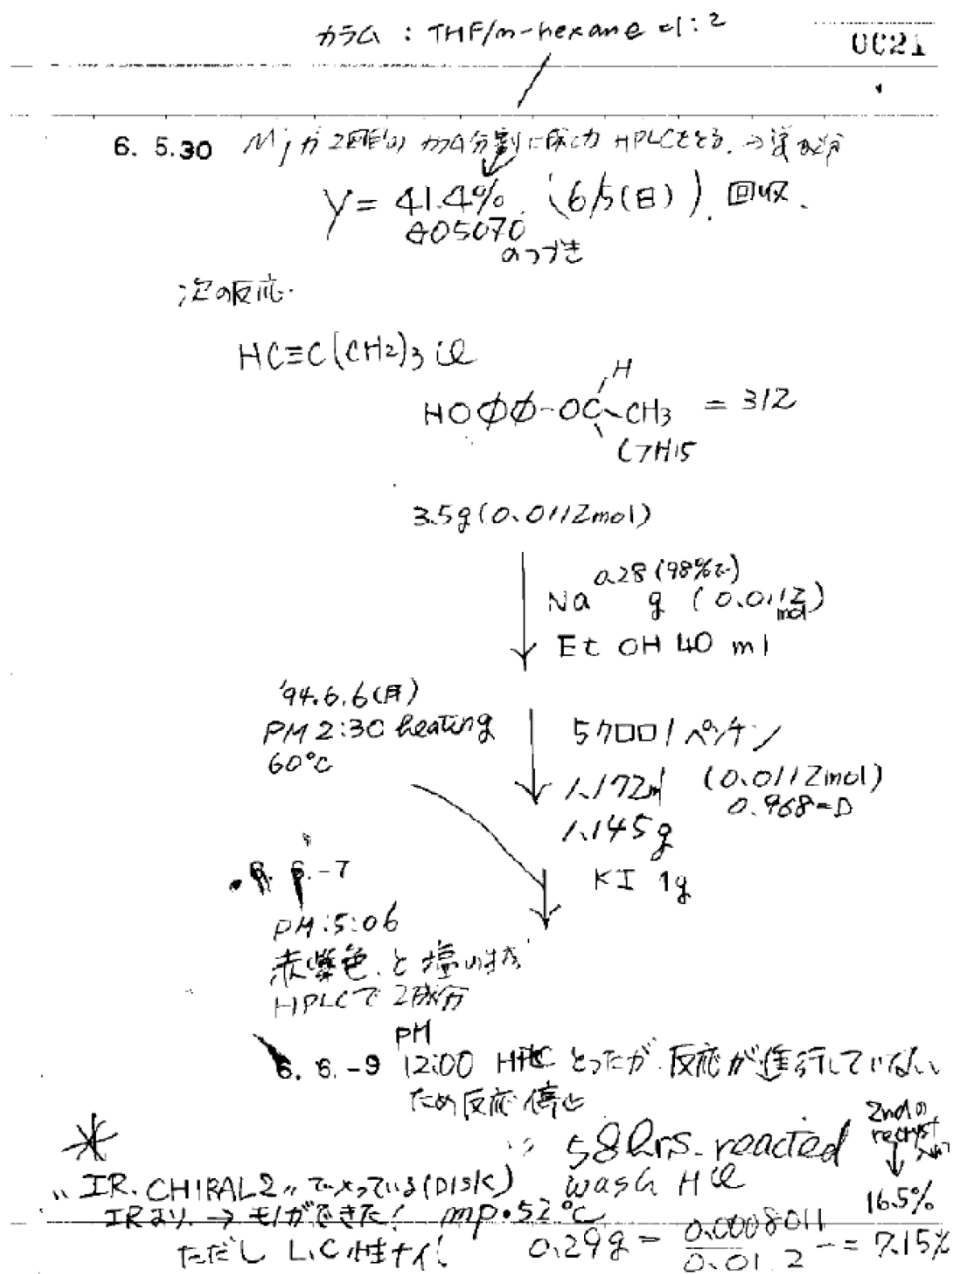 カラム : THF/n-hexane =1:2
0021
6. 5.30 HPLCをとる. →
Y = 41.4% (6/5(日)). 回収.
405070
のつづき
次の反応.
HC≡C(CH2)3 Cl
H
HO∅∅-OC-CH3 = 312
C7H15
3.5g(0.0112mol)
0.28 (98%で)
Na g (0.0112 mol)
Et OH 40 ml
'94.6.6(月)
PM 2:30 heating
60°C
5クロロ1ペンチン
1.172ml (0.0112mol)
0.968=D
1.145g
KI 1g
6. 6.-7
PM:5:06
赤紫色と塩の
HPLCで 2成分
PM
6. 6.-9 12:00 HPLC とったが 反応が進行していない
ため反応停止
58hrs. reacted
2ndの
recryst
wash HCl
16.5%
"IR. CHIRAL2" で入っている(DISK)
IRより. → モノができた! mp. 52°C
ただし L.C性ナイ!
0.29g = 0.0008011 / 0.0112 = 7.15%